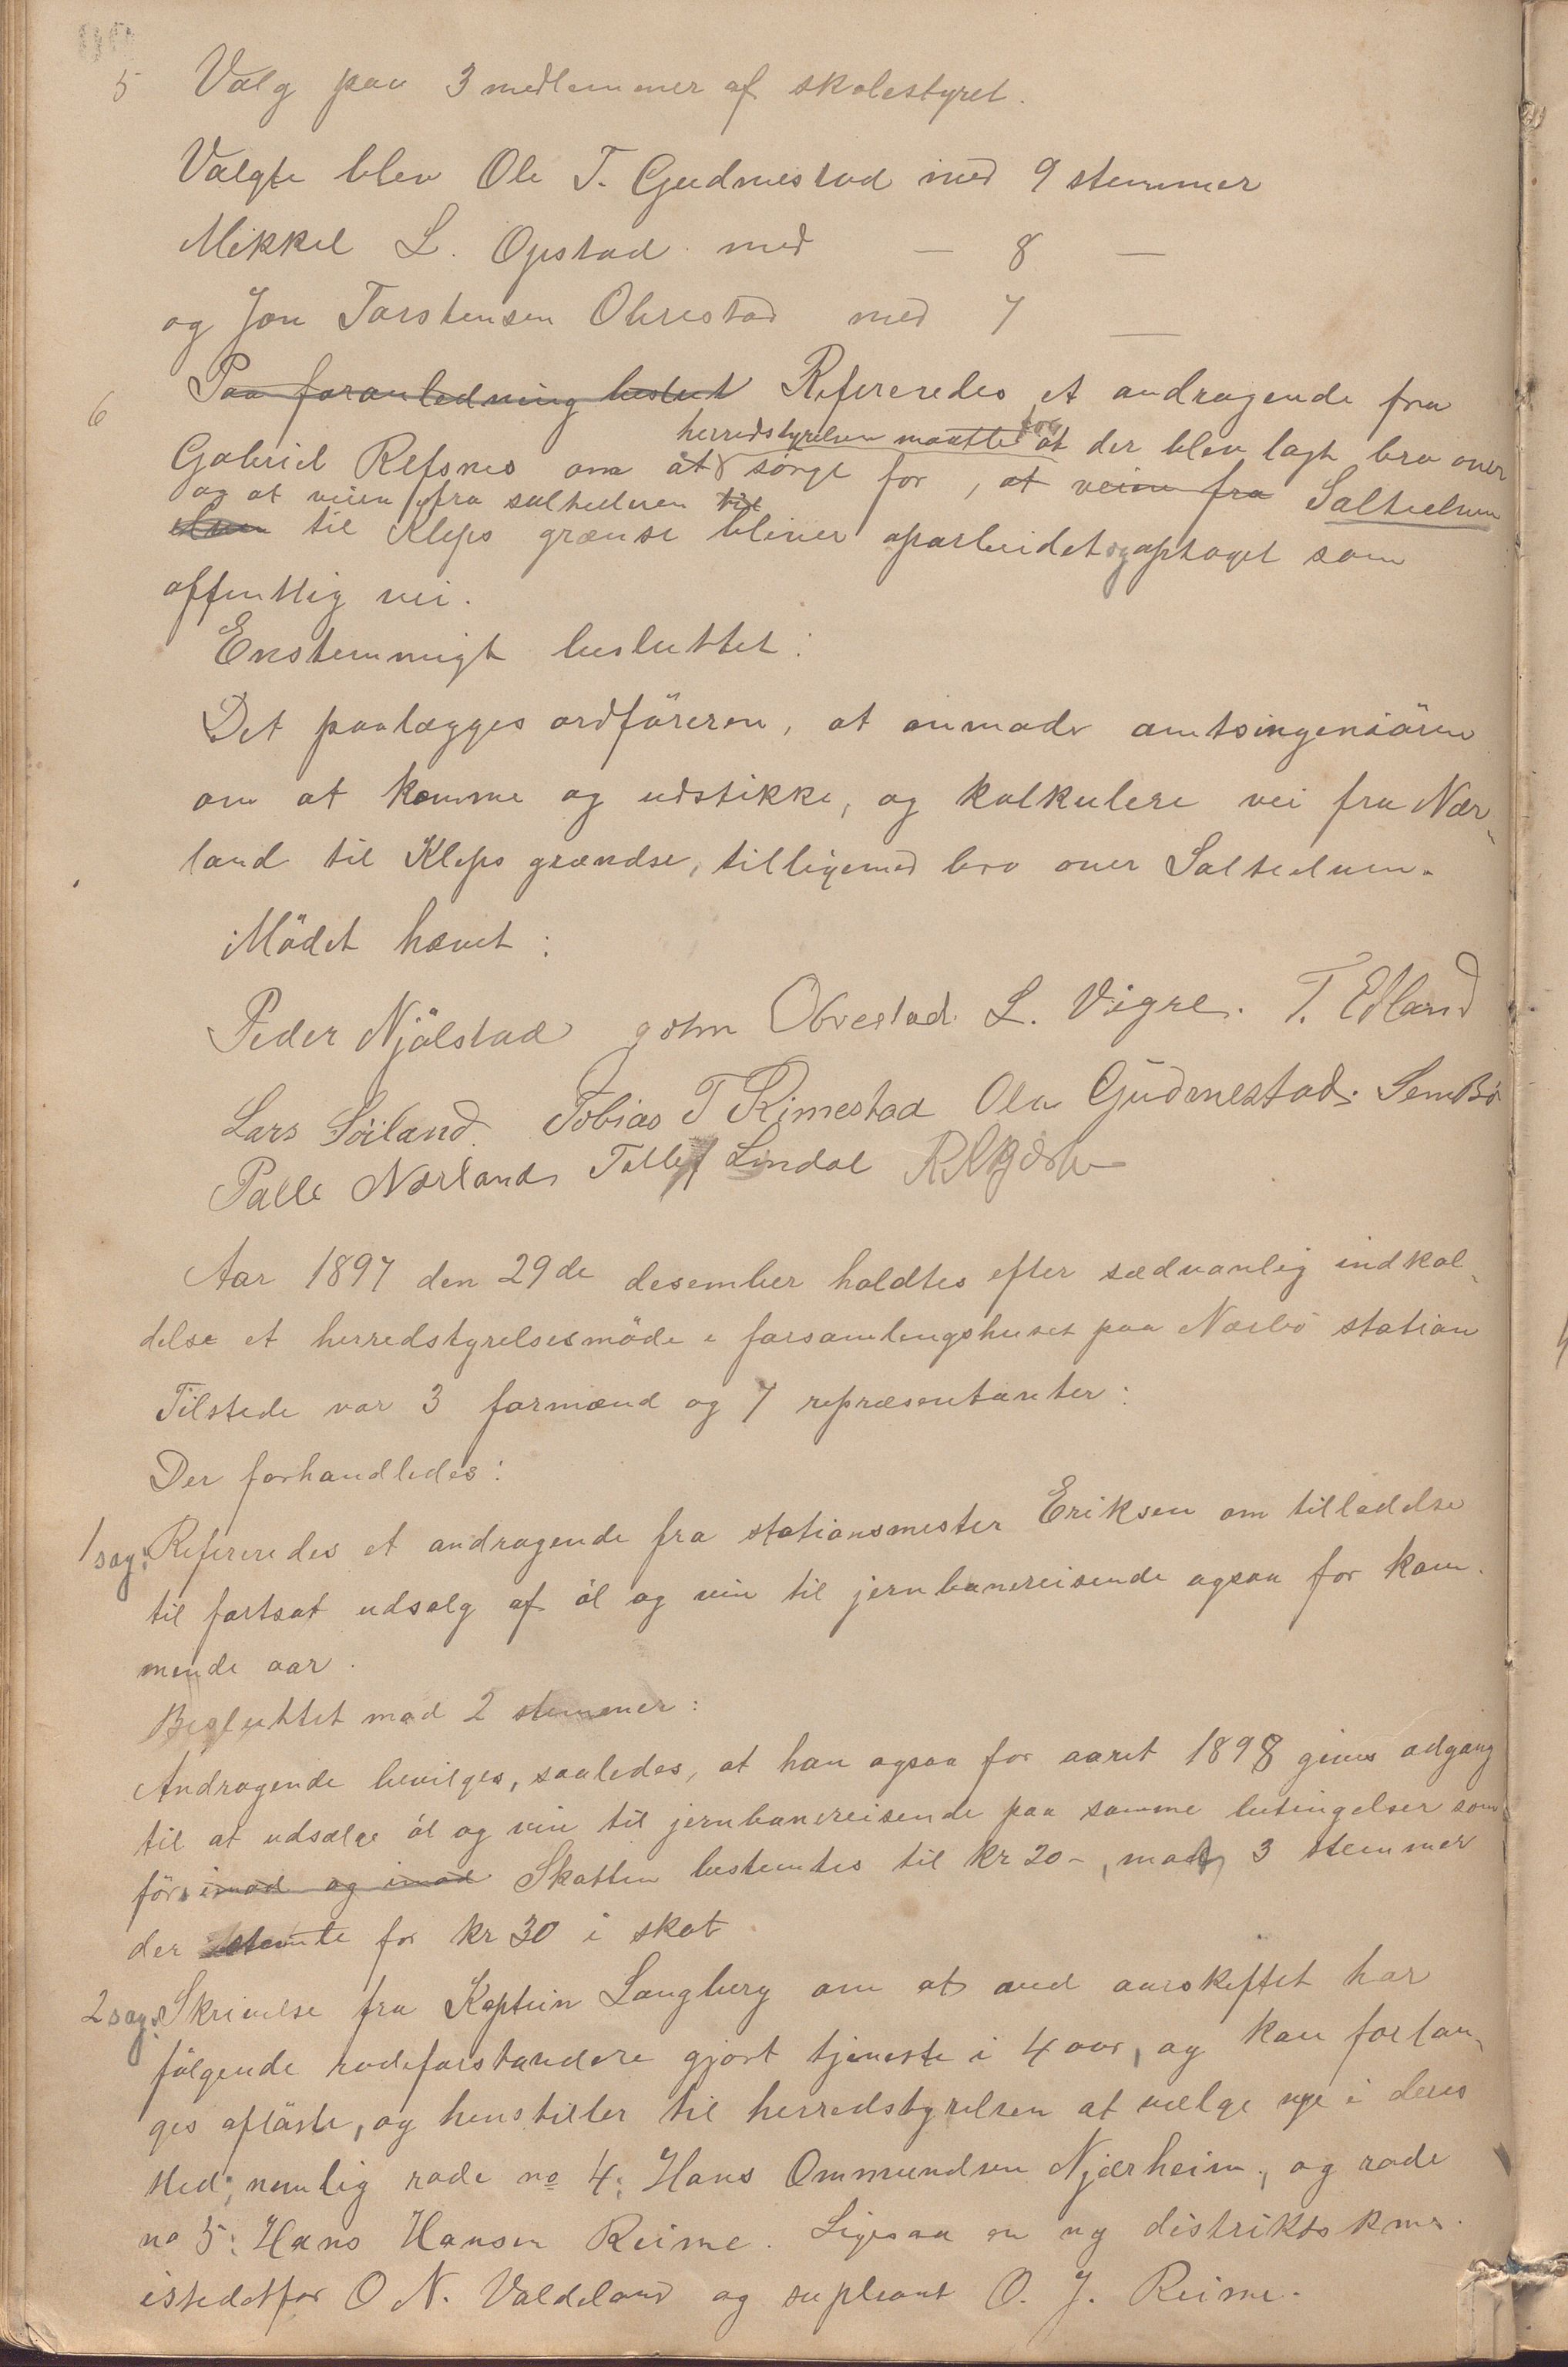 5 Valg paa 3 medlemmer af skolestyret.
Valgte blev Ole T. Gudmestad med 9 stemmer
Mikkel L. Opstad med — 8 —
og Jon Torstensen Obrestad med 7 —
6 Paa foranledning beslut Refereredes et andragende fra
herredstyrelsen maatte
Gabriel Refsnes om at sørge for, at der blev lagt bro over
at veien fra Salteelven
og at veien fra salteelven til
til Kleps grænse bliver oparbeidet og optaget som
offentlig vei.
Enstemmigt besluttet:
Det paalægges ordføreren, at anmode amtsingeniøren
om at komme og udstikke, og kalkulere vei fra Nær-
land til Kleps grændse, tilligemed bro over Salteelven.
Mödet hævet:
Peder Njälstad John Obrestad L. Vigre. T. Edland
Lars Söiland. Tobias T Rimestad Ola Gudmestad. Sem Bö
Palle Nærland Tollef Lindal
Aar 1897 den 29de desember holdtes efter sædvanlig indkal-
delse et herredstyrelsesmöde i forsamlingshuset paa Nærbö station
Tilstede var 3 formænd og 7 repræsentanter:
Der forhandledes:
1 sag: Refereredes et andragende fra stationsmester Eriksen om tilladelse
til fortsat udsalg af öl og vin til jernbanereisende ogsaa for kom-
mende aar.
Besluttet mod 2 stemmer:
Andragende bevilges, saaledes, at han ogsaa for aaret 1898 gives adgang
til at udsælge öl og vin til jernbanereisende paa samme betingelser som
för. imod og imod Skatten bestemtes til kr 20 -, mod 3 stemmer
der stemte for kr 30 i skat
2 sag: Skrivelse fra Kaptein Langberg om at ved aarskiftet har
fölgende rodeforstandere gjort tjeneste i 4 aar, og kan forlan-
ges aflöste, og henstiller til herredstyrelsen at vælge nye i deres
sted; nemlig rode no 4: Hans Ommundsen Njærheim, og rode
no 5: Hans Hansen Reime. Ligesaa en ny distriktskms.
istedetfor O N. Valdeland og supleant O. J. Reime.